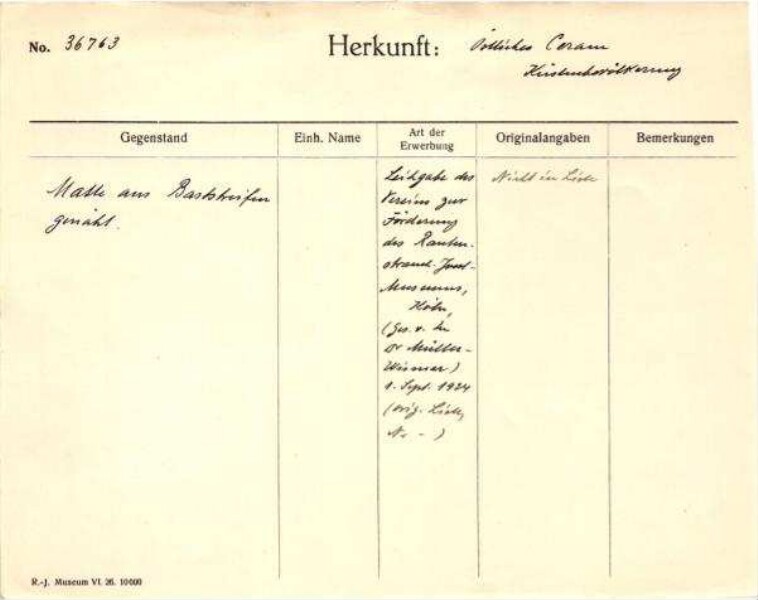 No. 36763 Herkunft: Östliches Ceram
Küstenbevölkerung
Gegenstand Einh. Name Art der Erwerbung Originalangaben Bemerkungen
Matte aus Baststreifen
genäht.
Leihgabe des
Vereins zur
Förderung
des Rauten-
strauch-Joest-
Museums,
Köln,
(Ges. v. Hn
Dr Müller-
Wismar)
1. Sept. 1924
(orig. Liste,
No - )
Nicht in Liste
R.-J. Museum VI. 26. 10000